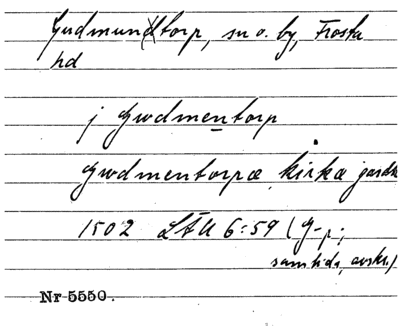 Gudmundtorp, sn o. by, Frosta
hd
j gwdmentorp
gwdmentorpæ kirkæ jordh
1502 LÄU 6:59 (g-p;
samtida, avskr.)
Nr 5550.